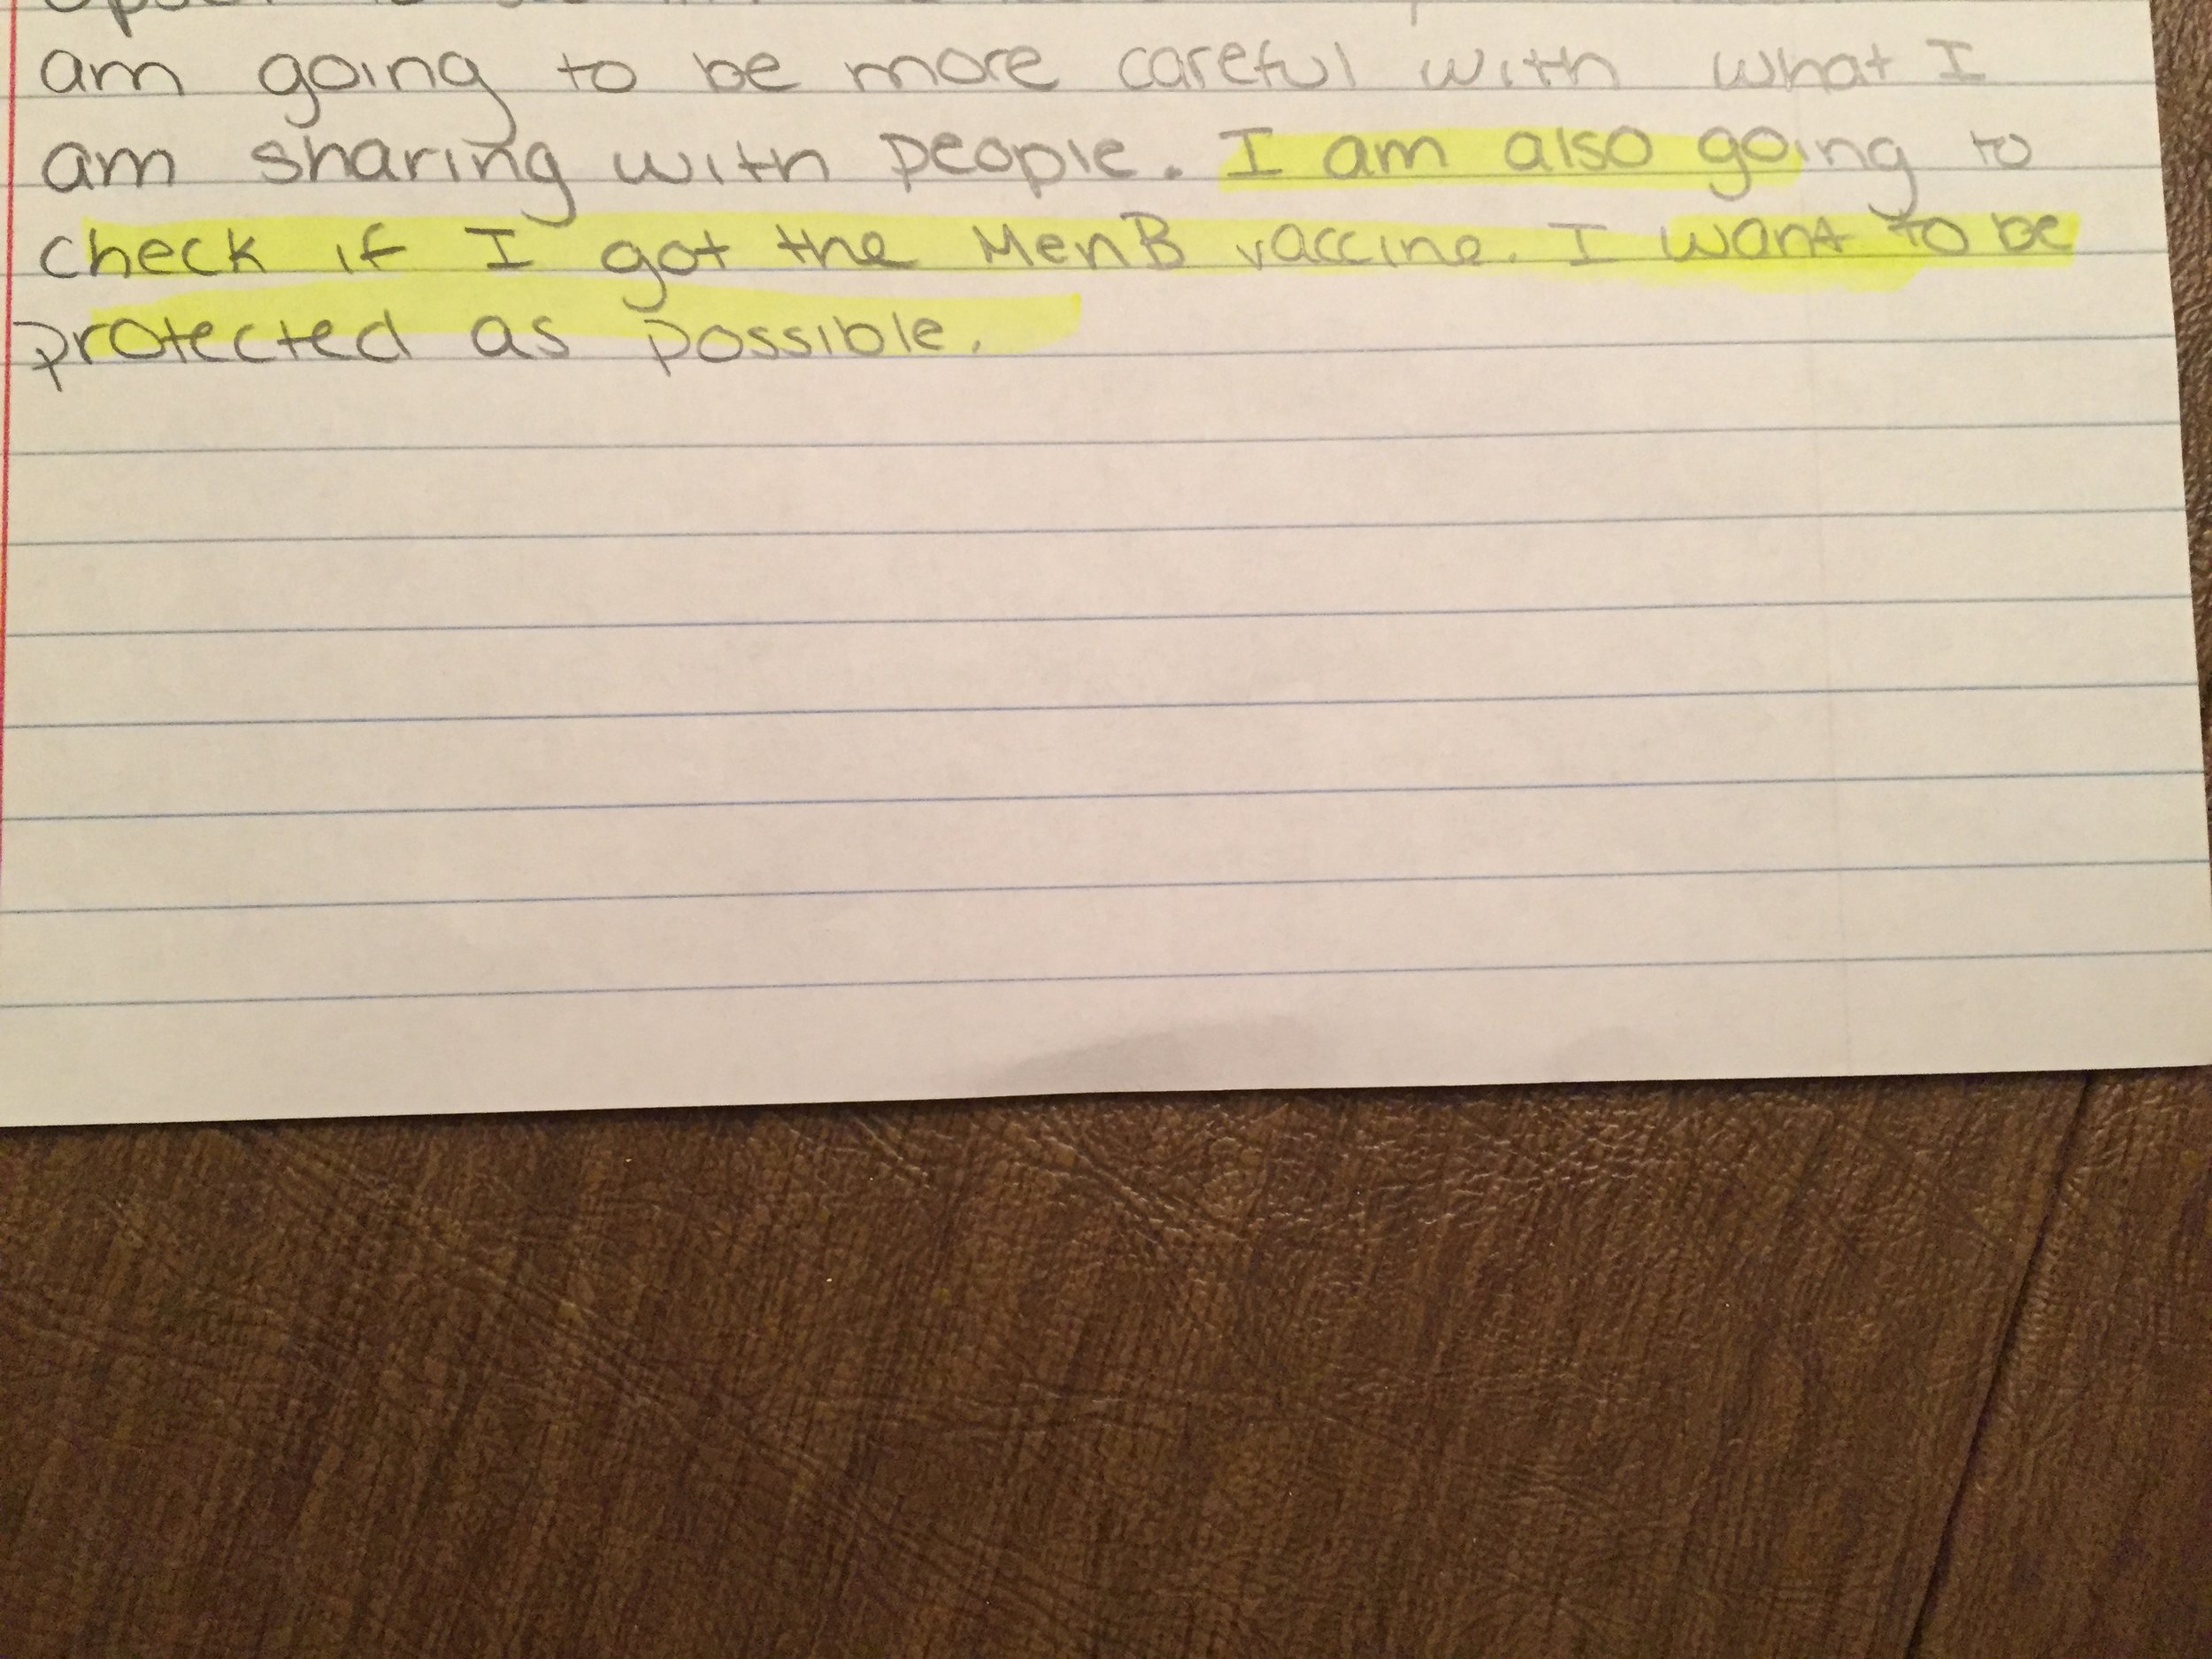 am going to be more careful with what I
am sharing with people. I am also going to
check if I got the MenB vaccine. I want to be
protected as possible.